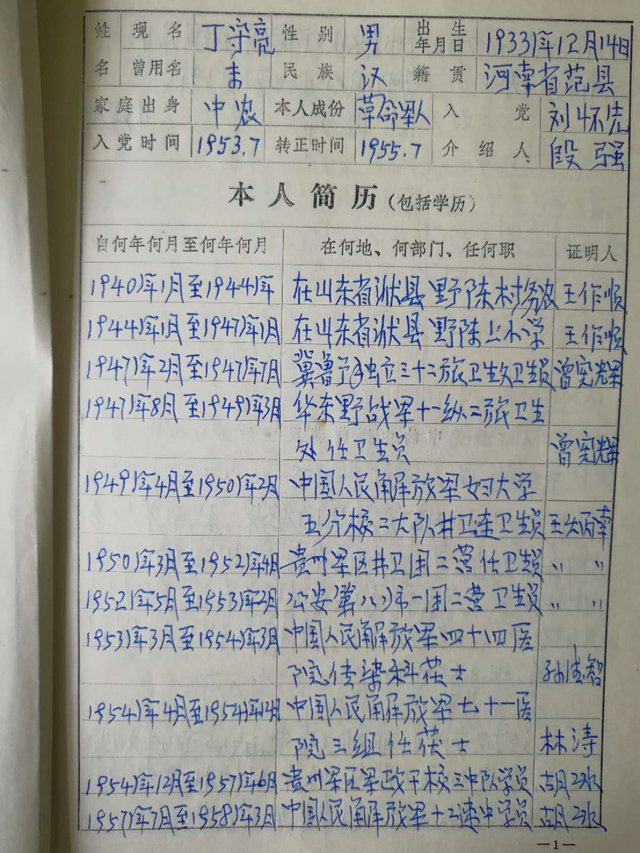 姓 现名 丁守亮 性别 男 出生年月日 1933年12月14日
名 曾用名 民族 汉 籍贯 河南省范县
家庭出身 中农 本人成份 革命军人 入党 刘怀亮
入党时间 1953.7 转正时间 1955.7 介绍人 段强
本人简历(包括学历)
自何年何月至何年何月 在何地、何部门、任何职 证明人
1940年1月至1944年 在山东省濮县野陈村务农 王作顺
1944年1月至1947年1月 在山东省濮县野陈上小学 王作顺
1947年2月至1947年7月 冀鲁予独立三十二旅卫生处卫生员 曾宪辉
1947年8月至1949年3月 华东野战军十一纵二旅卫生
处任卫生员 曾宪辉
1949年4月至1950年2月 中国人民解放军大学
五分校二大队井卫连卫生员 丙南
1950年3月至1952年4月 贵州军区井卫团二营任卫生员 〃 〃
1952年5月至1953年2月 公安第八师一团二营卫生员 〃 〃
1953年3月至1954年3月 中国人民解放军四十四医
院传染科茯士 孙法智
1954年4月至1954年 中国人民解放军七十一医
院三组任茯士 林涛
1954年12月至1957年6月 贵州军区军政干校三中队学员 胡冰
1957年7月至1958年3月 中国人民解放军十速中学员 胡冰
—1—